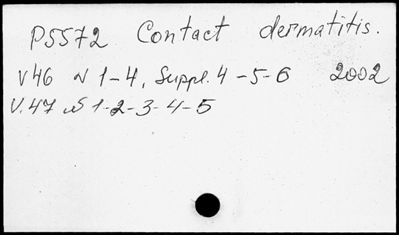 P5572 Contact dermatitis.
V46 N 1-4, Suppl. 4-5-6 2002
V.47 N 1-2-3-4-5